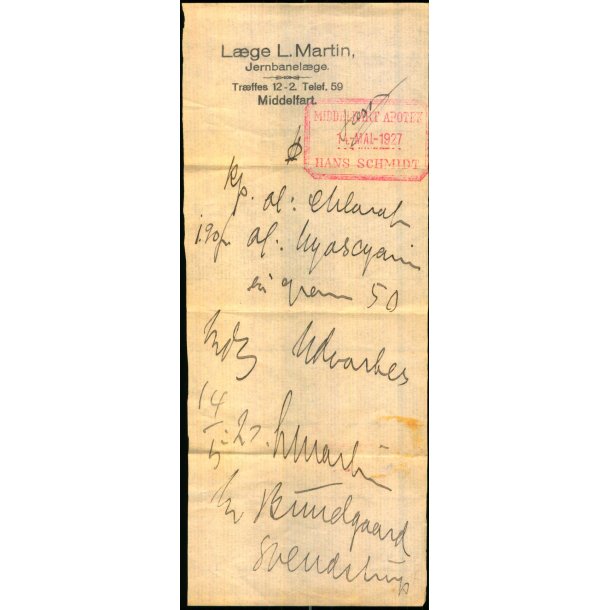 Læge L. Martin,
Jernbanelæge.
Træffes 12-2. Telef. 59
Middelfart.
MIDDELFART APOTEK
14. MAI. 1927
HANS SCHMIDT
Rp. Ol:
1.90 Ol: Hyoscyam
gram 50
Udvortes
14/5 27. LMartin
Hr Bundgaard
Svendstrup